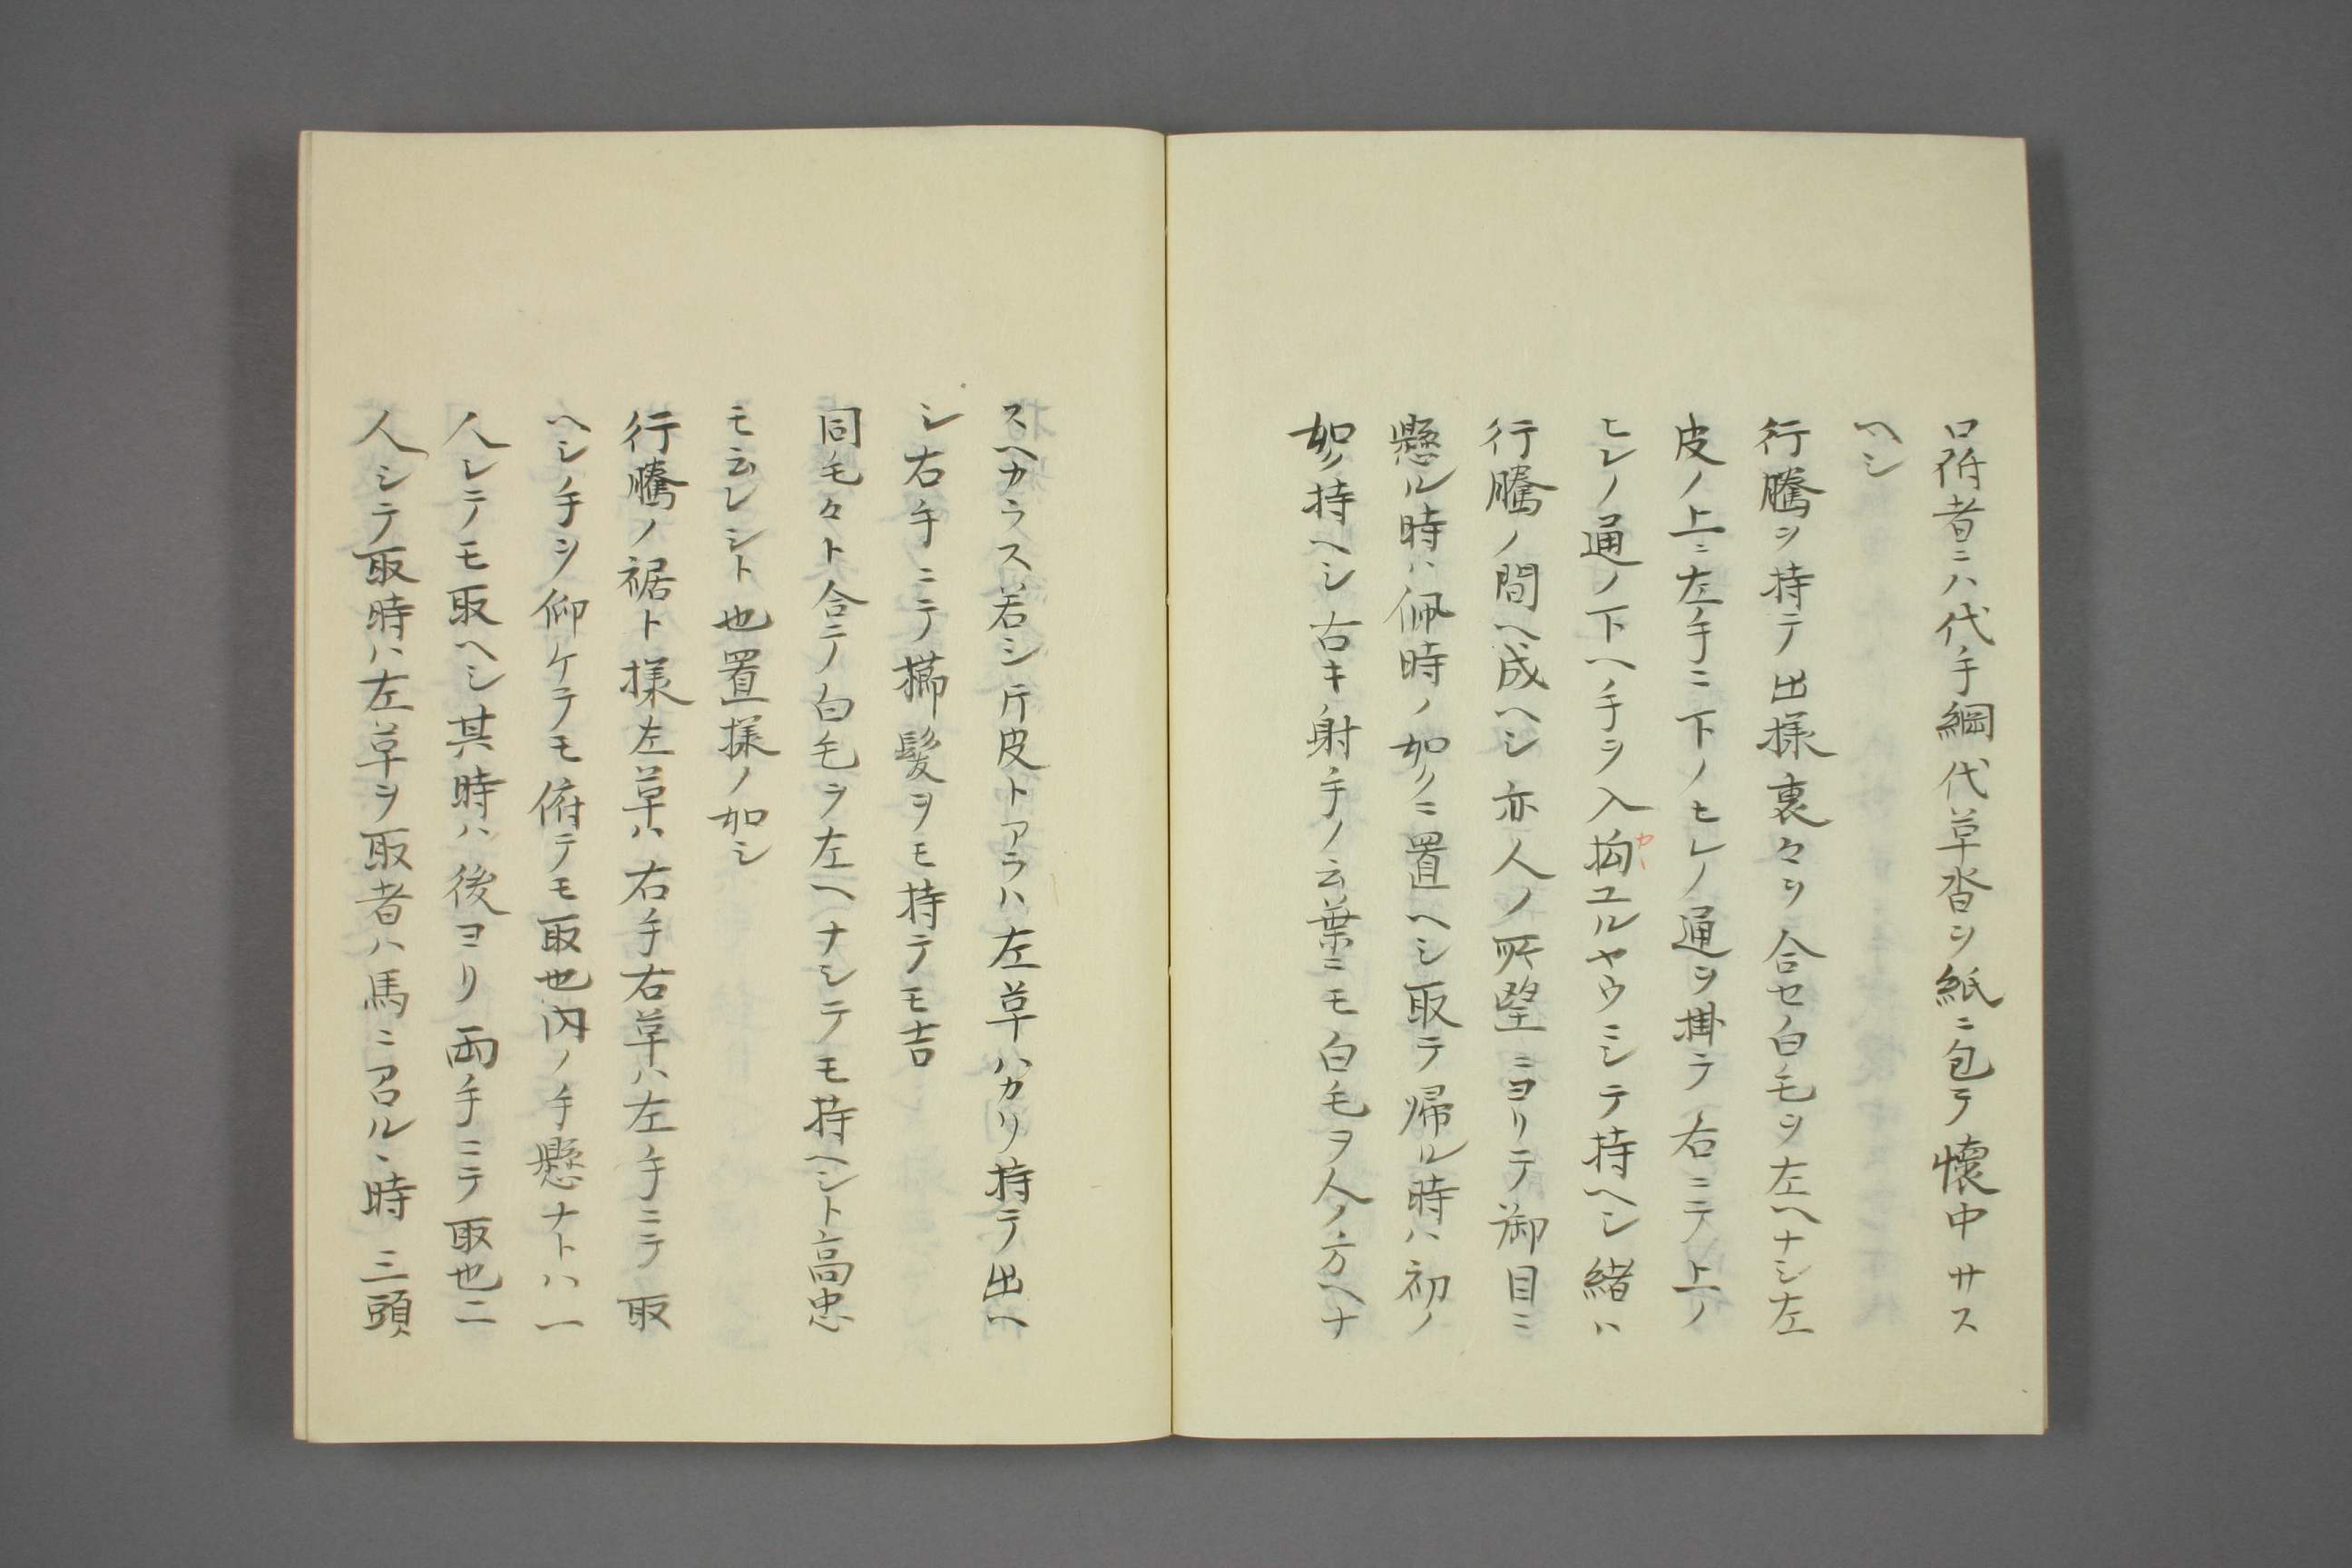 口符者ニハ代手綱代草沓ヲ紙ニ包テ懐中サス
ヘシ
行騰ヲ持テ出様裏々ヲ合セ白毛ヲ左ヘナシ左
皮ノ上ニ左手ニ下ノヒレノ通ヲ掛テ右ニテ上ノ
ヒレノ通ノ下ヘ手ヲ入拘ユルヤウニシテ持ヘシ緒ハ
行騰ノ間ヘ成ヘシ亦人ノ所望ニヨリテ御目ニ
懸ル時ハ佩時ノ如クニ置ヘシ取テ帰ル時ハ初ノ
如ク持ヘシ古キ射手ノ云葉ニモ白毛ヲ人ノ方ヘナ
スヘカラス若シ片皮トアラハ左草ハカリ持テ出ヘ
シ右手ニテ櫛髪ヲモ持テモ吉
同毛々ト合テノ白毛ヲ左ヘナシテモ持ヘシト高忠
モ云レシト也置様ノ如シ
行騰ノ裾ト様左草ハ右手右草ハ左手ニテ取
ヘシノ手ヲ仰ケテモ俯テモ取也内ノ手懸ナトハ一
人シテモ取ヘシ其時ハ後ヨリ両手ニテ取也二
人シテ取時ハ左草ヲ取者ハ馬ニ召ルヽ時三頭